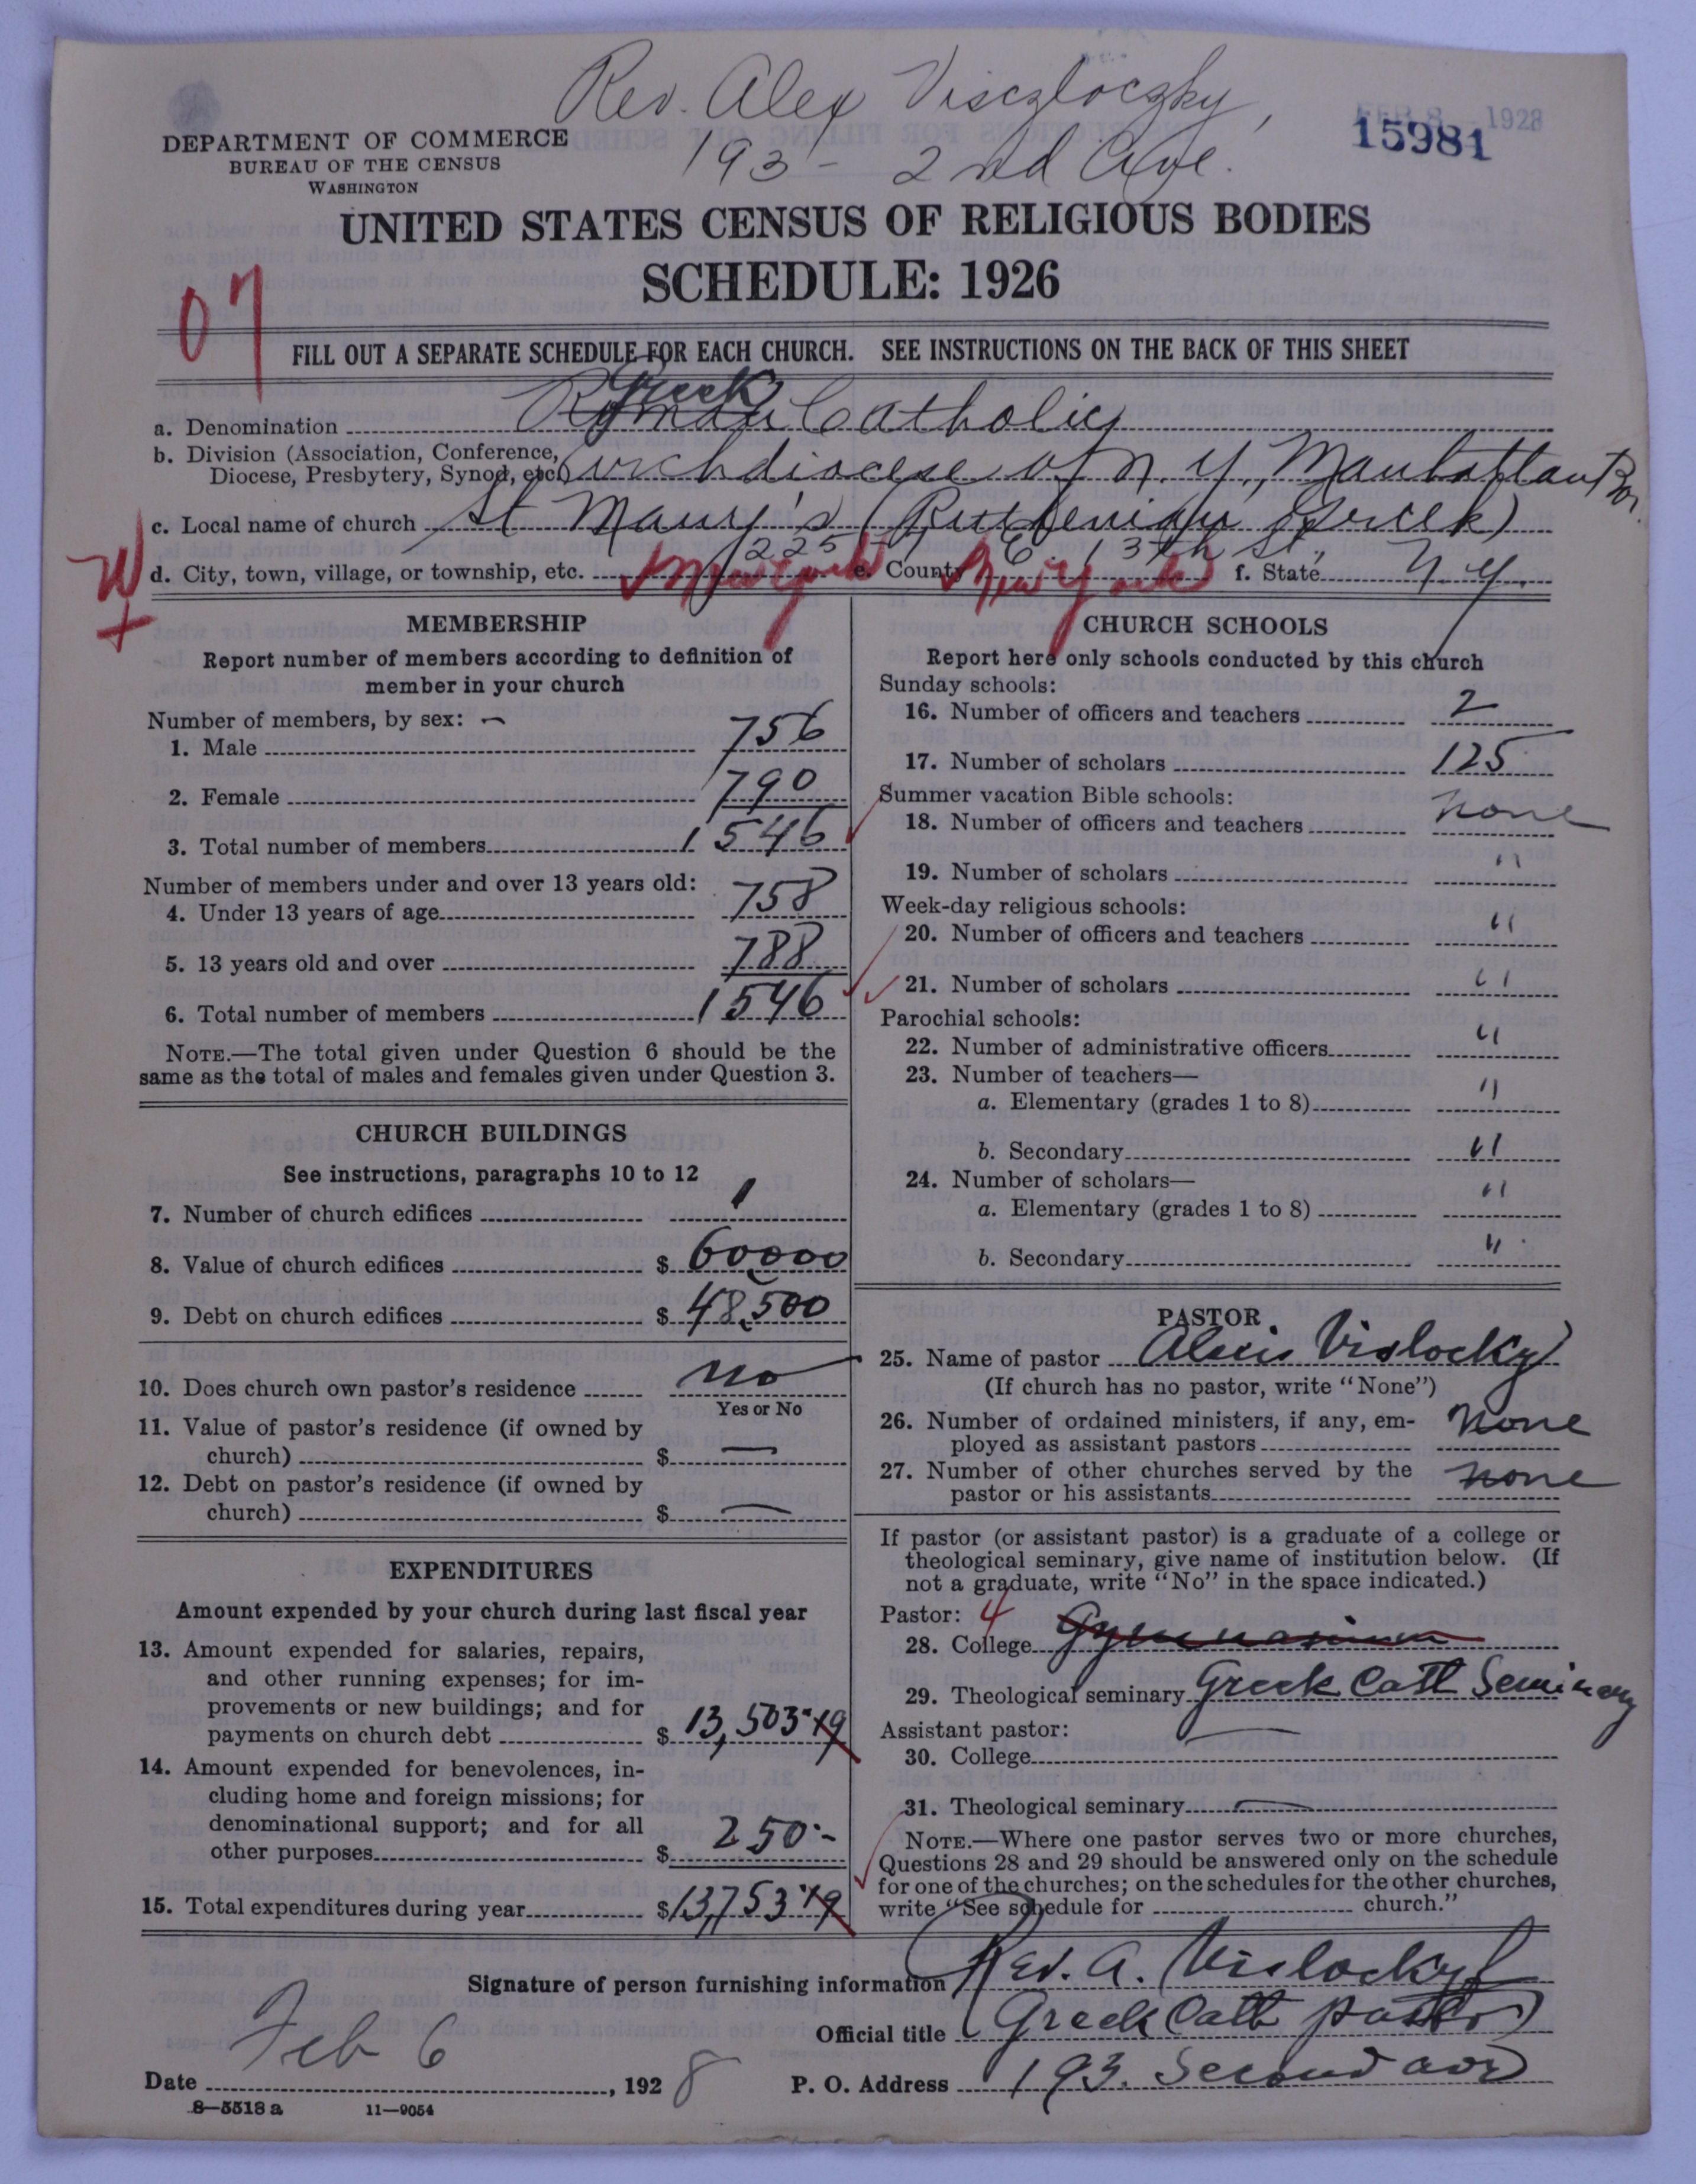 Rev. Alex Visczloczky,
193 - 2nd Ave.
FEB 8 1928
15981
DEPARTMENT OF COMMERCE
BUREAU OF THE CENSUS
WASHINGTON
UNITED STATES CENSUS OF RELIGIOUS BODIES
SCHEDULE: 1926
07
FILL OUT A SEPARATE SCHEDULE FOR EACH CHURCH. SEE INSTRUCTIONS ON THE BACK OF THIS SHEET
Greek
a. Denomination Roman Catholic
b. Division (Association, Conference,
Diocese, Presbytery, Synod, etc.) Archdiocese of N. Y., Manhattan Bor.
c. Local name of church St Mary's (Ruthenian Greek)
225-7 E. 13th St,
d. City, town, village, or township, etc. New York e. County New York f. State N. Y.
W
MEMBERSHIP
Report number of members according to definition of
member in your church
Number of members, by sex:
1. Male 756
2. Female 790
3. Total number of members 1546
Number of members under and over 13 years old:
4. Under 13 years of age 758
5. 13 years old and over 788
6. Total number of members 1546
NOTE.—The total given under Question 6 should be the
same as the total of males and females given under Question 3.
CHURCH BUILDINGS
See instructions, paragraphs 10 to 12
7. Number of church edifices 1
8. Value of church edifices $ 60000
9. Debt on church edifices $ 48,500
10. Does church own pastor's residence no
Yes or No
11. Value of pastor's residence (if owned by
church) $ —
12. Debt on pastor's residence (if owned by
church) $ —
EXPENDITURES
Amount expended by your church during last fiscal year
13. Amount expended for salaries, repairs,
and other running expenses; for im-
provements or new buildings; and for
payments on church debt $ 13,503.19
14. Amount expended for benevolences, in-
cluding home and foreign missions; for
denominational support; and for all
other purposes $ 250.-
15. Total expenditures during year $ 13,753.19
CHURCH SCHOOLS
Report here only schools conducted by this church
Sunday schools:
16. Number of officers and teachers 2
17. Number of scholars 125
Summer vacation Bible schools:
18. Number of officers and teachers none
19. Number of scholars "
Week-day religious schools:
20. Number of officers and teachers "
21. Number of scholars "
Parochial schools:
22. Number of administrative officers "
23. Number of teachers—
a. Elementary (grades 1 to 8) "
b. Secondary "
24. Number of scholars—
a. Elementary (grades 1 to 8) "
b. Secondary "
PASTOR
25. Name of pastor Alexis Vislocky
(If church has no pastor, write "None")
26. Number of ordained ministers, if any, em-
ployed as assistant pastors none
27. Number of other churches served by the
pastor or his assistants none
If pastor (or assistant pastor) is a graduate of a college or
theological seminary, give name of institution below. (If
not a graduate, write "No" in the space indicated.)
Pastor: 4
28. College Gymnasium
29. Theological seminary Greek Cath Seminary
Assistant pastor:
30. College —
31. Theological seminary —
NOTE.—Where one pastor serves two or more churches,
Questions 28 and 29 should be answered only on the schedule
for one of the churches; on the schedules for the other churches,
write "See schedule for church."
Signature of person furnishing information Rev. A. Vislocky
Official title Greek Cath pastor
Date Feb 6, 1928 P. O. Address 193. Second ave
8—5518 a 11—9054